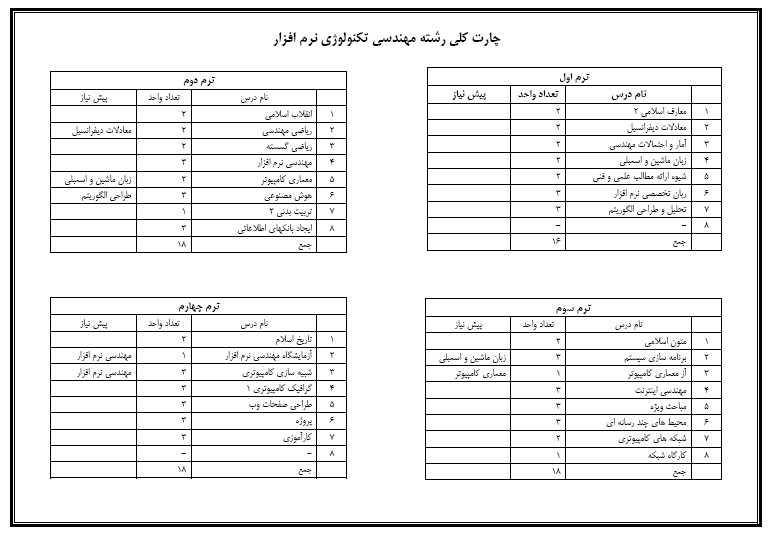 چارت کلی رشته مهندسی تکنولوژی نرم افزار
ترم اول
نام درس تعداد واحد پیش نیاز
۱ معارف اسلامی ۲ ۲
۲ معادلات دیفرانسیل ۲
۳ آمار و احتمالات مهندسی ۲
۴ زبان ماشین و اسمبلی ۲
۵ شیوه ارائه مطالب علمی و فنی ۲
۶ زبان تخصصی نرم افزار ۳
۷ تحلیل و طراحی الگوریتم ۳
۸ - -
جمع ۱۶
ترم دوم
نام درس تعداد واحد پیش نیاز
۱ انقلاب اسلامی ۲
۲ ریاضی مهندسی ۲ معادلات دیفرانسیل
۳ ریاضی گسسته ۲
۴ مهندسی نرم افزار ۳
۵ معماری کامپیوتر ۲ زبان ماشین و اسمبلی
۶ هوش مصنوعی ۳ طراحی الگوریتم
۷ تربیت بدنی ۲ ۱
۸ ایجاد بانکهای اطلاعاتی ۳
جمع ۱۸
ترم سوم
نام درس تعداد واحد پیش نیاز
۱ متون اسلامی ۲
۲ برنامه سازی سیستم ۳ زبان ماشین و اسمبلی
۳ آز معماری کامپیوتر ۱ معماری کامپیوتر
۴ مهندسی اینترنت ۳
۵ مباحث ویژه ۳
۶ محیط های چند رسانه ای ۳
۷ شبکه های کامپیوتری ۲
۸ کارگاه شبکه ۱
جمع ۱۸
ترم چهارم
نام درس تعداد واحد پیش نیاز
۱ تاریخ اسلام ۲
۲ آزمایشگاه مهندسی نرم افزار ۱ مهندسی نرم افزار
۳ شبیه سازی کامپیوتری ۳ مهندسی نرم افزار
۴ گرافیک کامپیوتری ۱ ۳
۵ طراحی صفحات وب ۳
۶ پروژه ۳
۷ کارآموزی ۳
۸ - -
جمع ۱۸